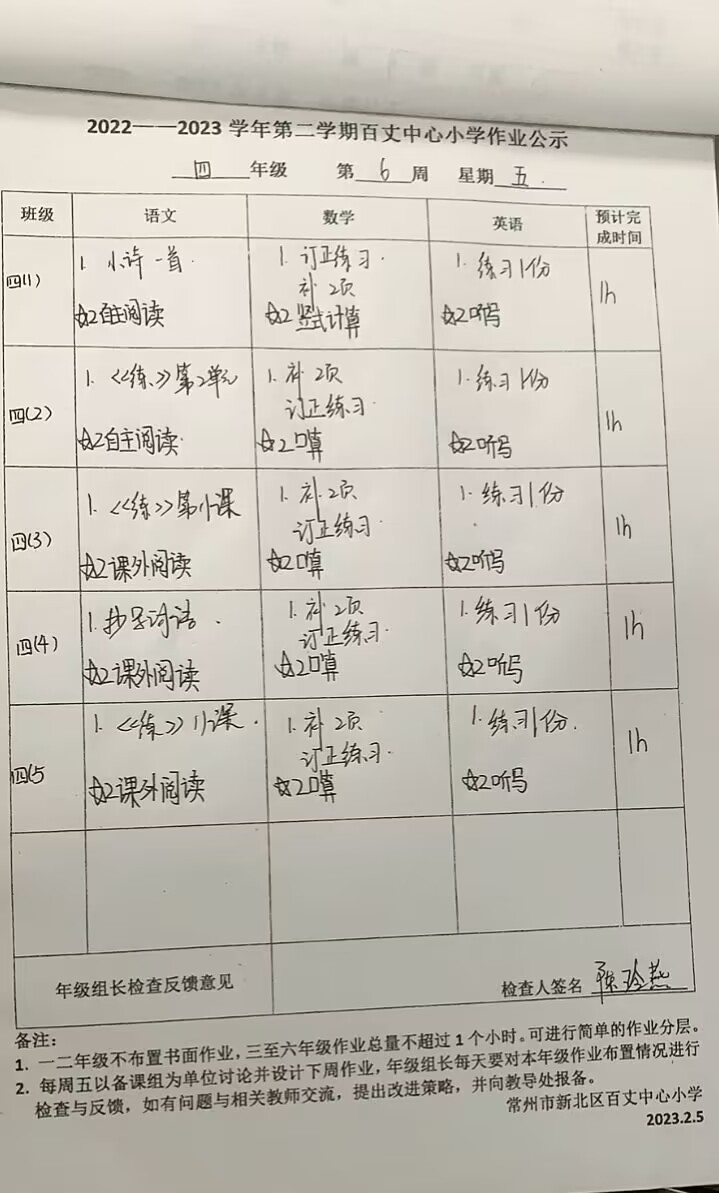 2022——2023 学年第二学期百丈中心小学作业公示
四 年级 第 6 周 星期 五
班级 语文 数学 英语 预计完成时间
四(1)
1. 小诗一首.
☆2自主阅读
1. 订正练习.
补 2页
☆2 竖式计算
1. 练习1份
☆2听写
1h
四(2)
1. 《练》第2单元
☆2自主阅读.
1. 补 2页
订正练习.
☆2口算
1. 练习1份
☆2听写
1h
四(3)
1. 《练》第11课
☆2课外阅读
1. 补 2页
订正练习.
☆2口算
1. 练习1份
☆2听写
1h
四(4)
1. 抄写词语.
☆2课外阅读
1. 补 2页
订正练习.
☆2口算
1. 练习1份
☆2听写
1h
四(5
1. 《练》11课.
☆2课外阅读
1. 补 2页
订正练习.
☆2口算
1. 练习1份.
☆2听写
1h
年级组长检查反馈意见
检查人签名 陈玲燕
备注:
1. 一二年级不布置书面作业,三至六年级作业总量不超过 1 个小时。可进行简单的作业分层。
2. 每周五以备课组为单位讨论并设计下周作业,年级组长每天要对本年级作业布置情况进行
检查与反馈,如有问题与相关教师交流,提出改进策略,并向教导处报备。
常州市新北区百丈中心小学
2023.2.5